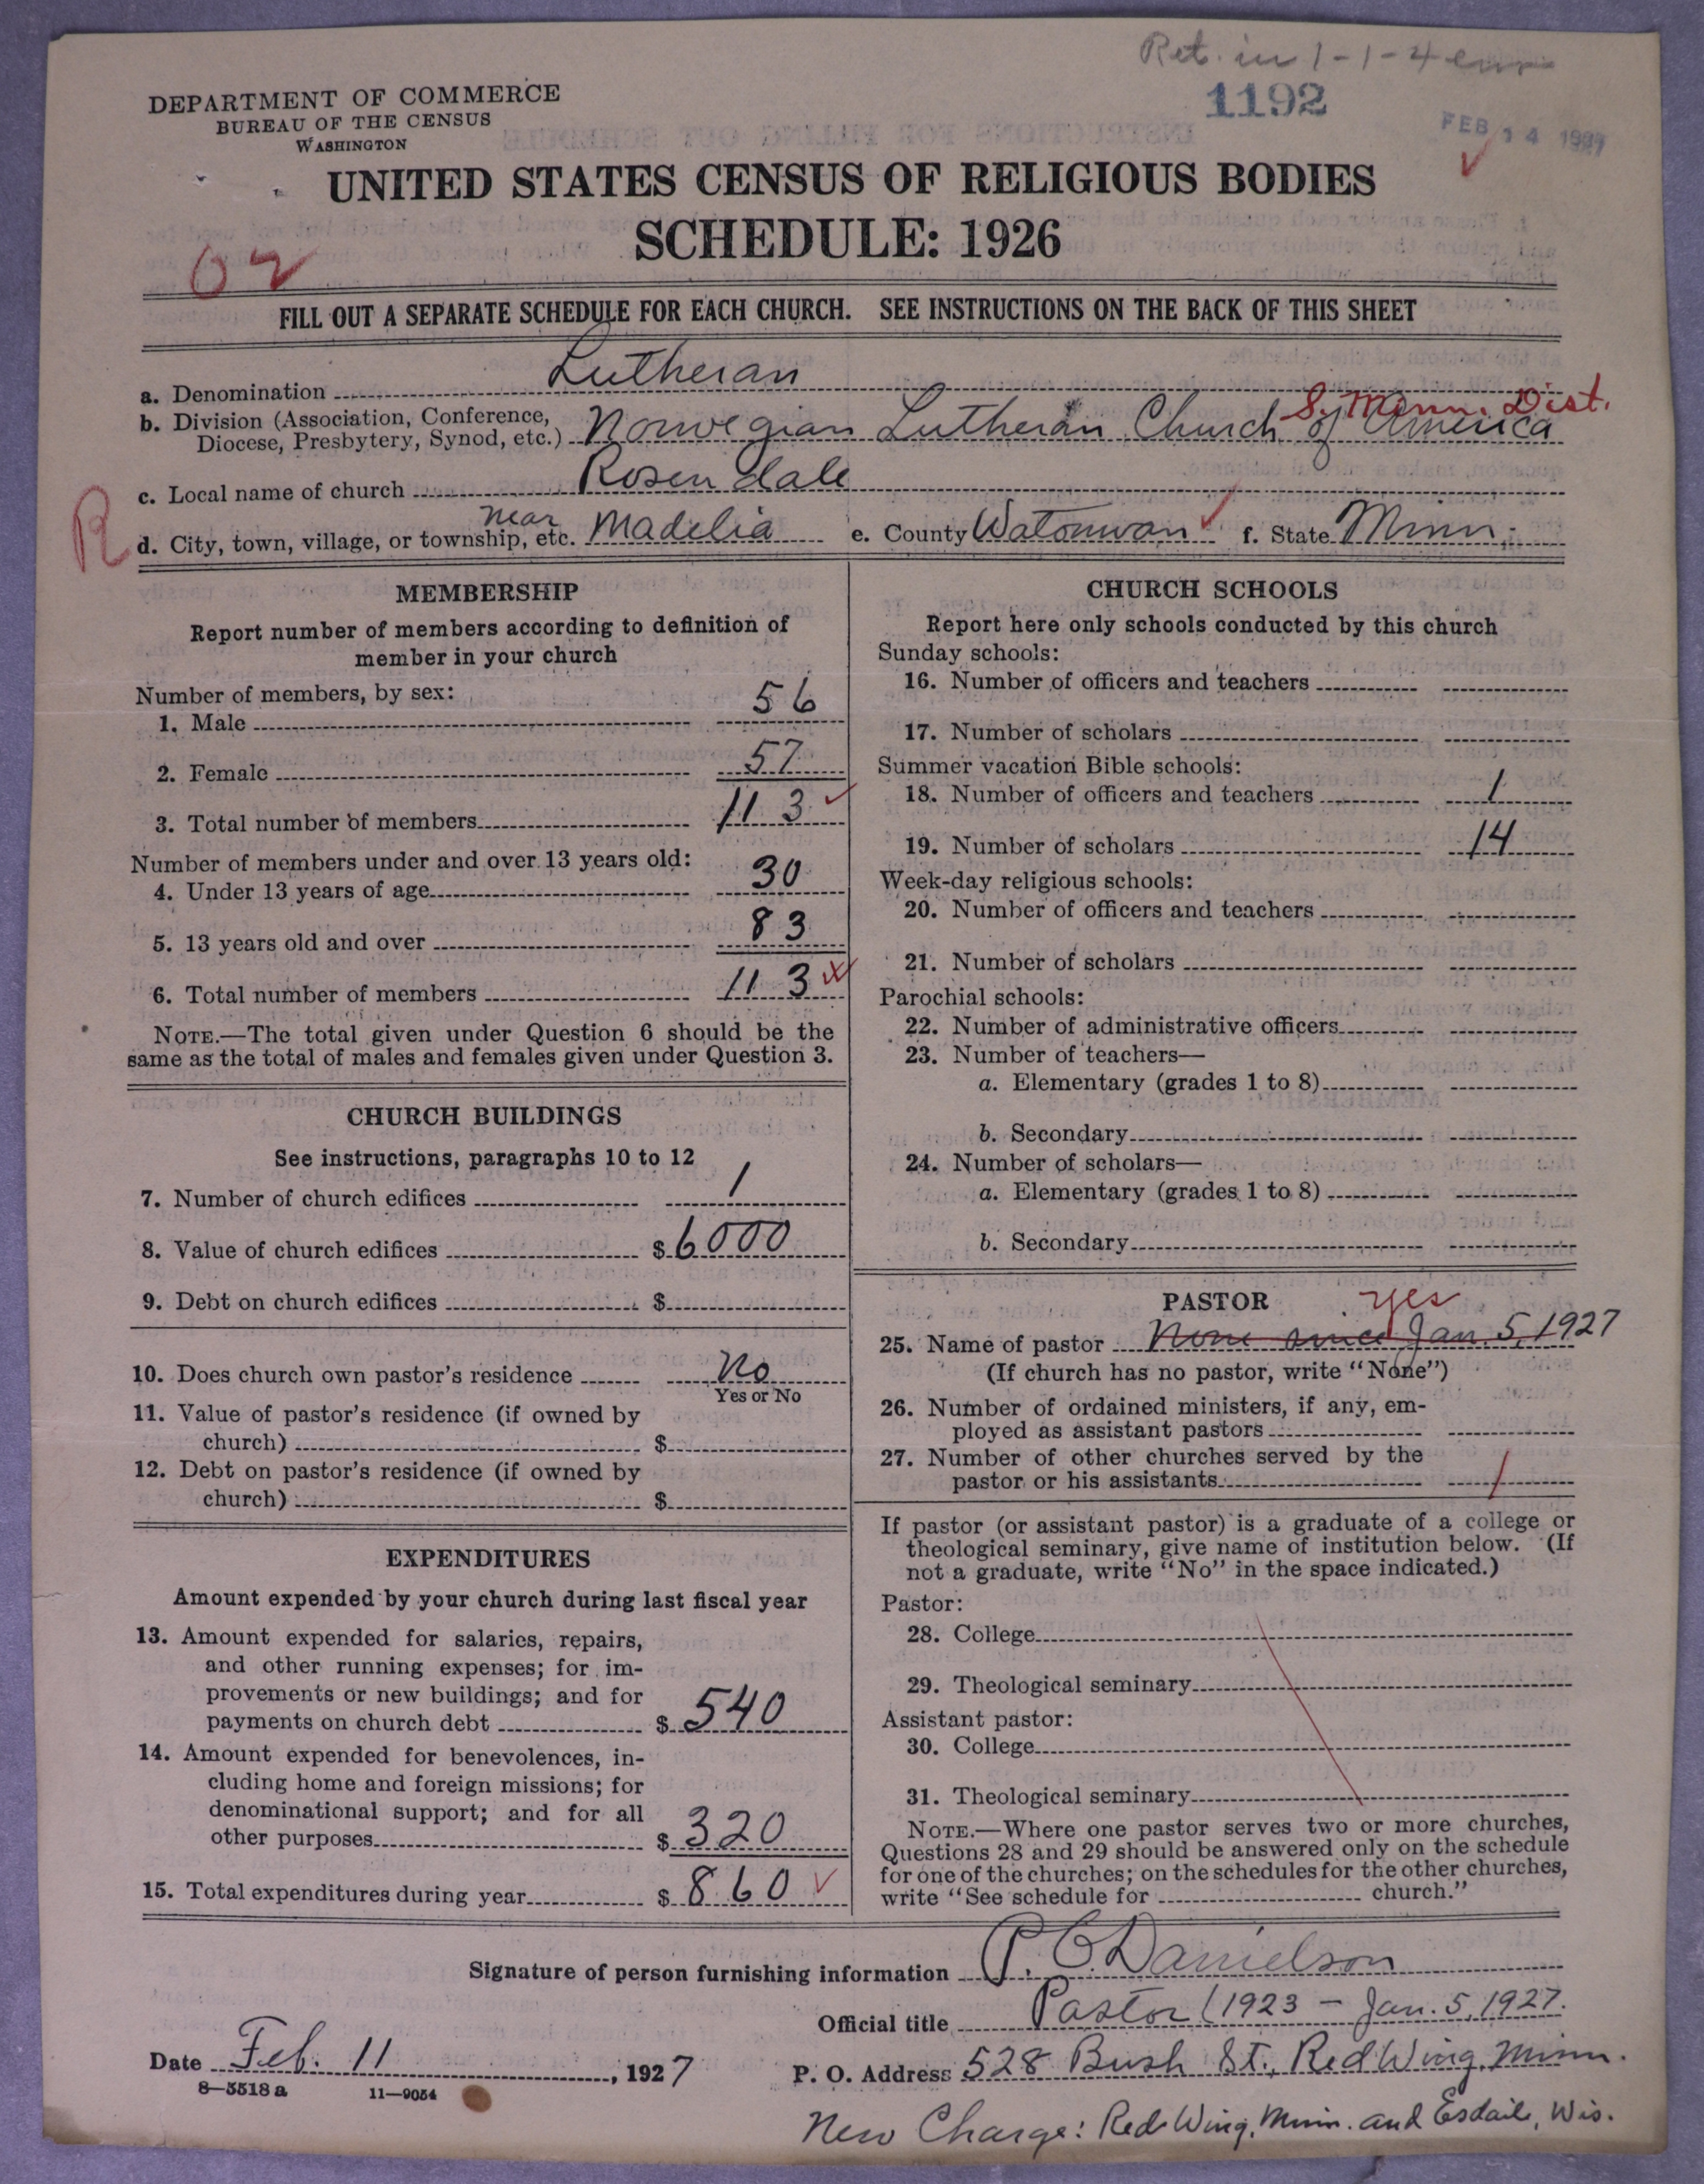 Ret. in 1-1-4
1192
FEB 14 1927
DEPARTMENT OF COMMERCE
BUREAU OF THE CENSUS
WASHINGTON
UNITED STATES CENSUS OF RELIGIOUS BODIES
SCHEDULE: 1926
02
FILL OUT A SEPARATE SCHEDULE FOR EACH CHURCH. SEE INSTRUCTIONS ON THE BACK OF THIS SHEET
a. Denomination Lutheran
S. Minn. Dist.
b. Division (Association, Conference,
Diocese, Presbytery, Synod, etc.) Norwegian Lutheran Church of America
c. Local name of church Rosendale
R
d. City, town, village, or township, etc. near Madelia e. County Watonwan f. State Minn.
MEMBERSHIP
Report number of members according to definition of
member in your church
Number of members, by sex:
1. Male 56
2. Female 57
3. Total number of members 113
Number of members under and over 13 years old:
4. Under 13 years of age 30
5. 13 years old and over 83
6. Total number of members 113
NOTE.—The total given under Question 6 should be the
same as the total of males and females given under Question 3.
CHURCH BUILDINGS
See instructions, paragraphs 10 to 12
7. Number of church edifices 1
8. Value of church edifices $6000
9. Debt on church edifices $
10. Does church own pastor's residence No
Yes or No
11. Value of pastor's residence (if owned by
church) $
12. Debt on pastor's residence (if owned by
church) $
EXPENDITURES
Amount expended by your church during last fiscal year
13. Amount expended for salaries, repairs,
and other running expenses; for im-
provements or new buildings; and for
payments on church debt $540
14. Amount expended for benevolences, in-
cluding home and foreign missions; for
denominational support; and for all
other purposes $320
15. Total expenditures during year $860
CHURCH SCHOOLS
Report here only schools conducted by this church
Sunday schools:
16. Number of officers and teachers
17. Number of scholars
Summer vacation Bible schools:
18. Number of officers and teachers 1
19. Number of scholars 14
Week-day religious schools:
20. Number of officers and teachers
21. Number of scholars
Parochial schools:
22. Number of administrative officers
23. Number of teachers—
a. Elementary (grades 1 to 8)
b. Secondary
24. Number of scholars—
a. Elementary (grades 1 to 8)
b. Secondary
PASTOR yes
25. Name of pastor None since Jan. 5, 1927
(If church has no pastor, write "None")
26. Number of ordained ministers, if any, em-
ployed as assistant pastors
27. Number of other churches served by the
pastor or his assistants 1
If pastor (or assistant pastor) is a graduate of a college or
theological seminary, give name of institution below. (If
not a graduate, write "No" in the space indicated.)
Pastor:
28. College
29. Theological seminary
Assistant pastor:
30. College
31. Theological seminary
NOTE.—Where one pastor serves two or more churches,
Questions 28 and 29 should be answered only on the schedule
for one of the churches; on the schedules for the other churches,
write "See schedule for church."
Signature of person furnishing information P. C. Danielson
Official title Pastor (1923 - Jan. 5, 1927.
Date Feb. 11, 1927 P. O. Address 528 Bush St., Red Wing, Minn.
8—5518 a 11—9054
New Charge: Red Wing, Minn. and Esdaile, Wis.